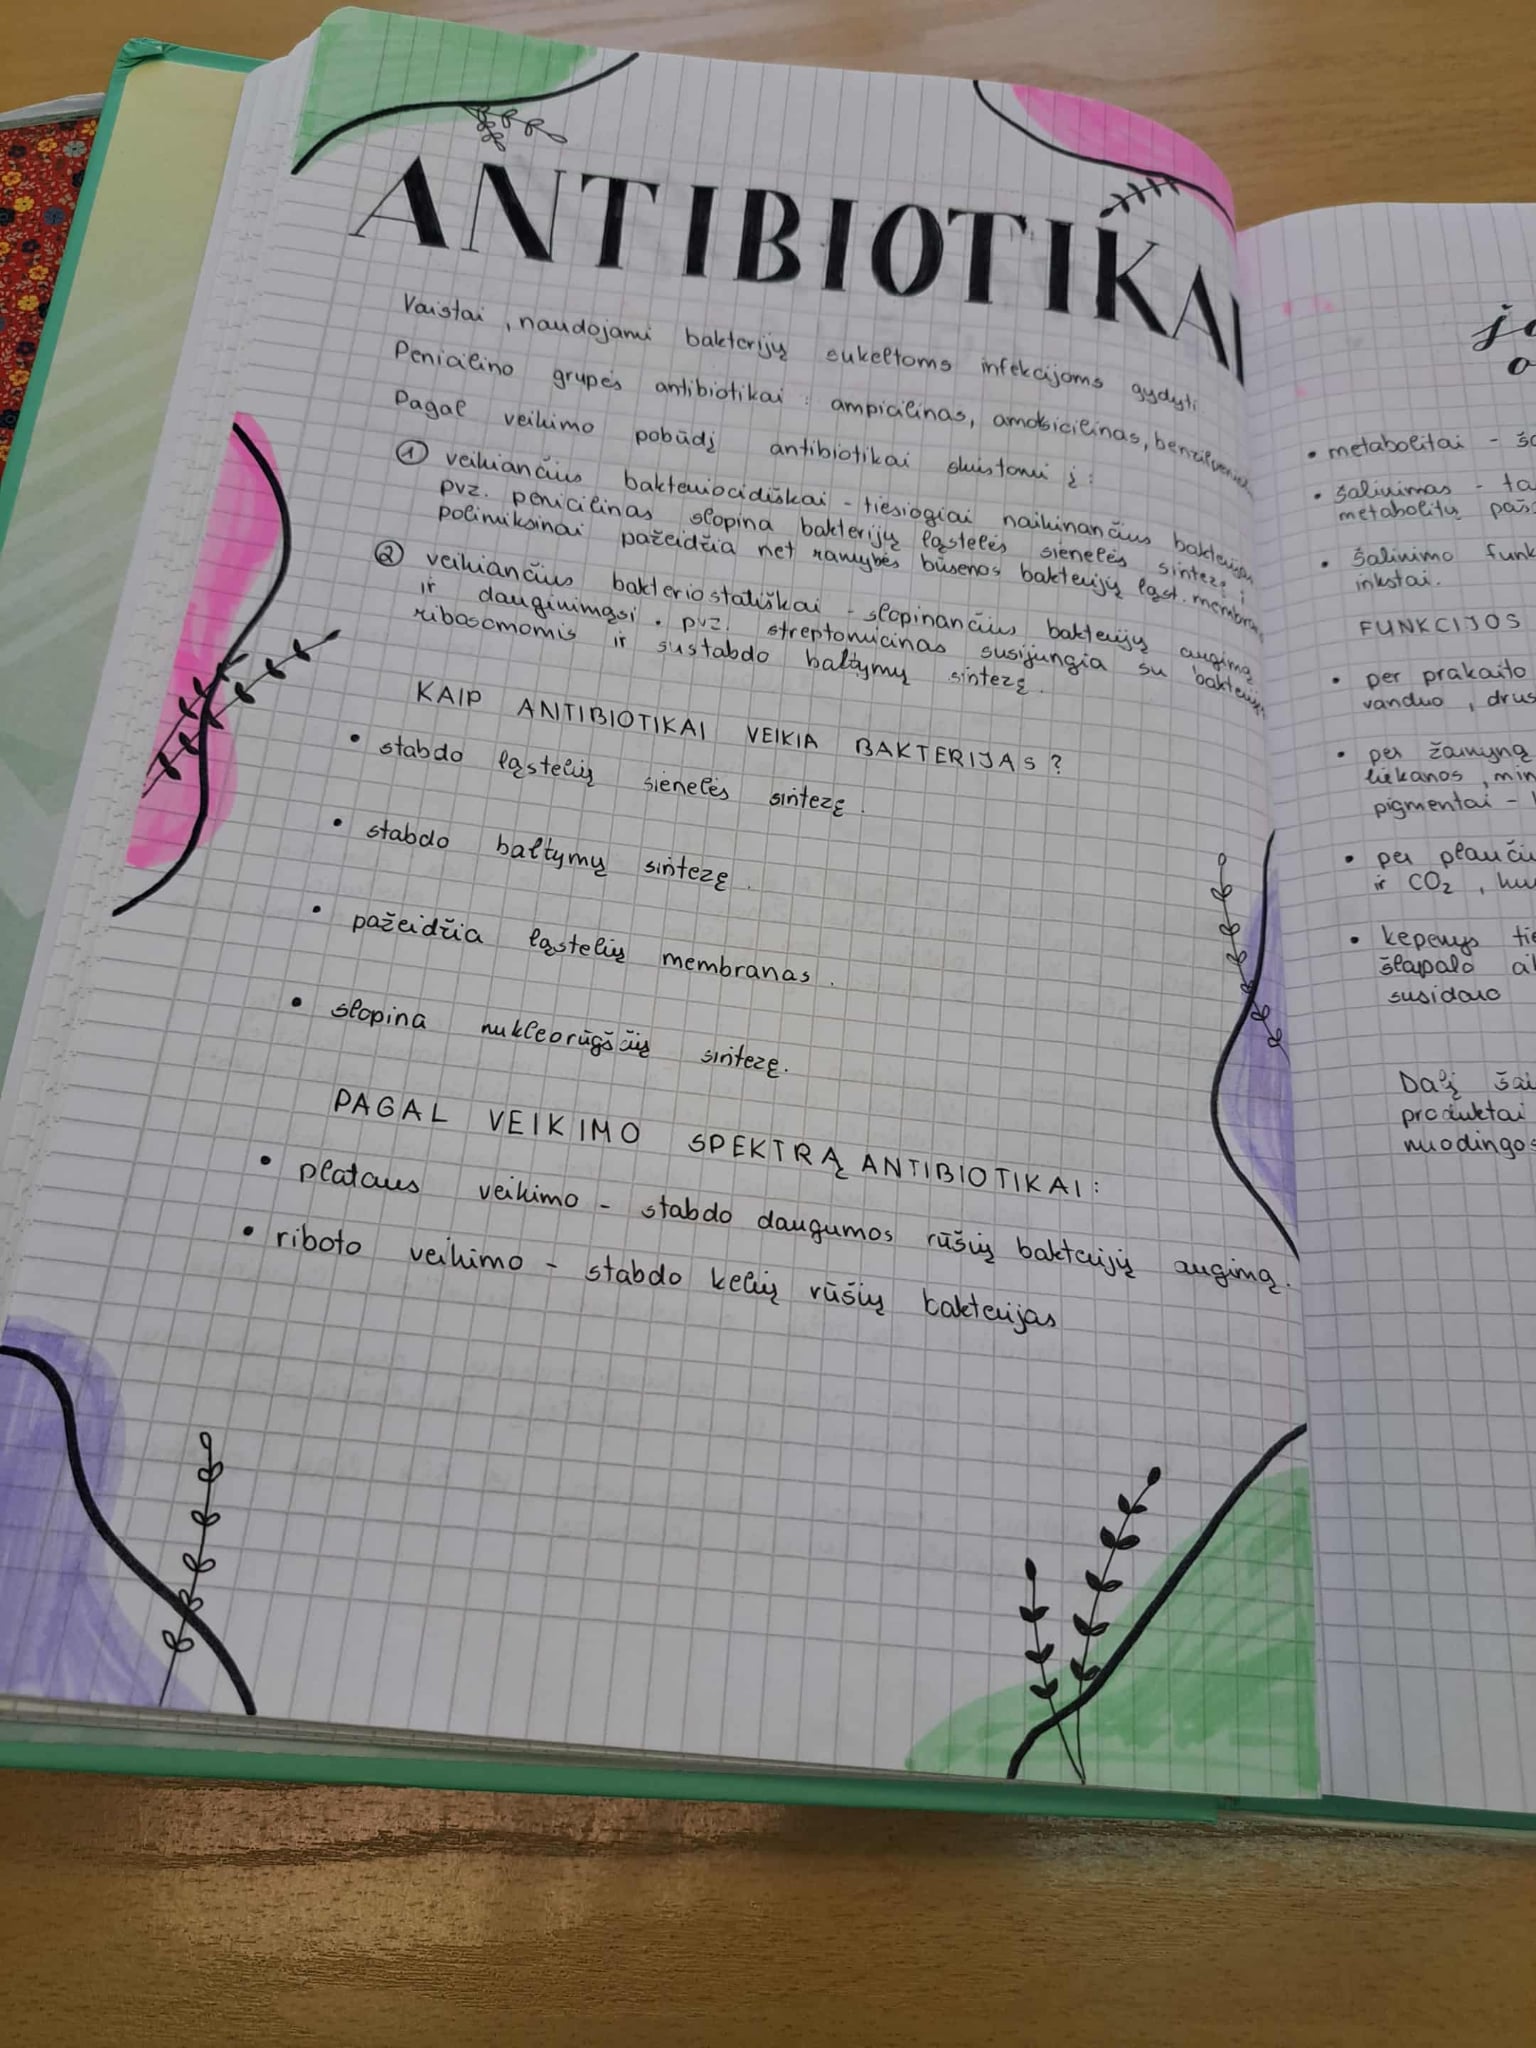 ANTIBIOTIKAI
Vaistai, naudojami bakterijų sukeltoms infekcijoms gydyti.
Penicilino grupės antibiotikai: ampicilinas, amoksicilinas,
Pagal veikimo pobūdį antibiotikai skirstomi į:
① veikiančius bakteriocidiškai - tiesiogiai naikinančius bakterijas
pvz. penicilinas slopina bakterijų ląstelės sienelės sintezę,
polimiksinai pažeidžia net ramybės būsenos bakterijų ląst. membranas
② veikiančius bakteriostatiškai - slopinančius bakterijų augimą
ir dauginimąsi. pvz. streptomicinas susijungia su bakterijų
ribosomomis ir sustabdo baltymų sintezę.
KAIP ANTIBIOTIKAI VEIKIA BAKTERIJAS?
• stabdo ląstelių sienelės sintezę.
• stabdo baltymų sintezę.
• pažeidžia ląstelių membranas.
• slopina nukleorūgščių sintezę.
PAGAL VEIKIMO SPEKTRĄ ANTIBIOTIKAI:
• plataus veikimo - stabdo daugumos rūšių bakterijų augimą.
• riboto veikimo - stabdo kelių rūšių bakterijas
• metabolitai -
• šalinimas -
metabolitų
• šalinimo
inkstai.
FUNKCIJOS
• per prakaito
vanduo,
• per žarnyną
liekanos,
pigmentai -
• per
ir CO₂,
• kepenys
šlapalo
susidaro
Dalį
produktai